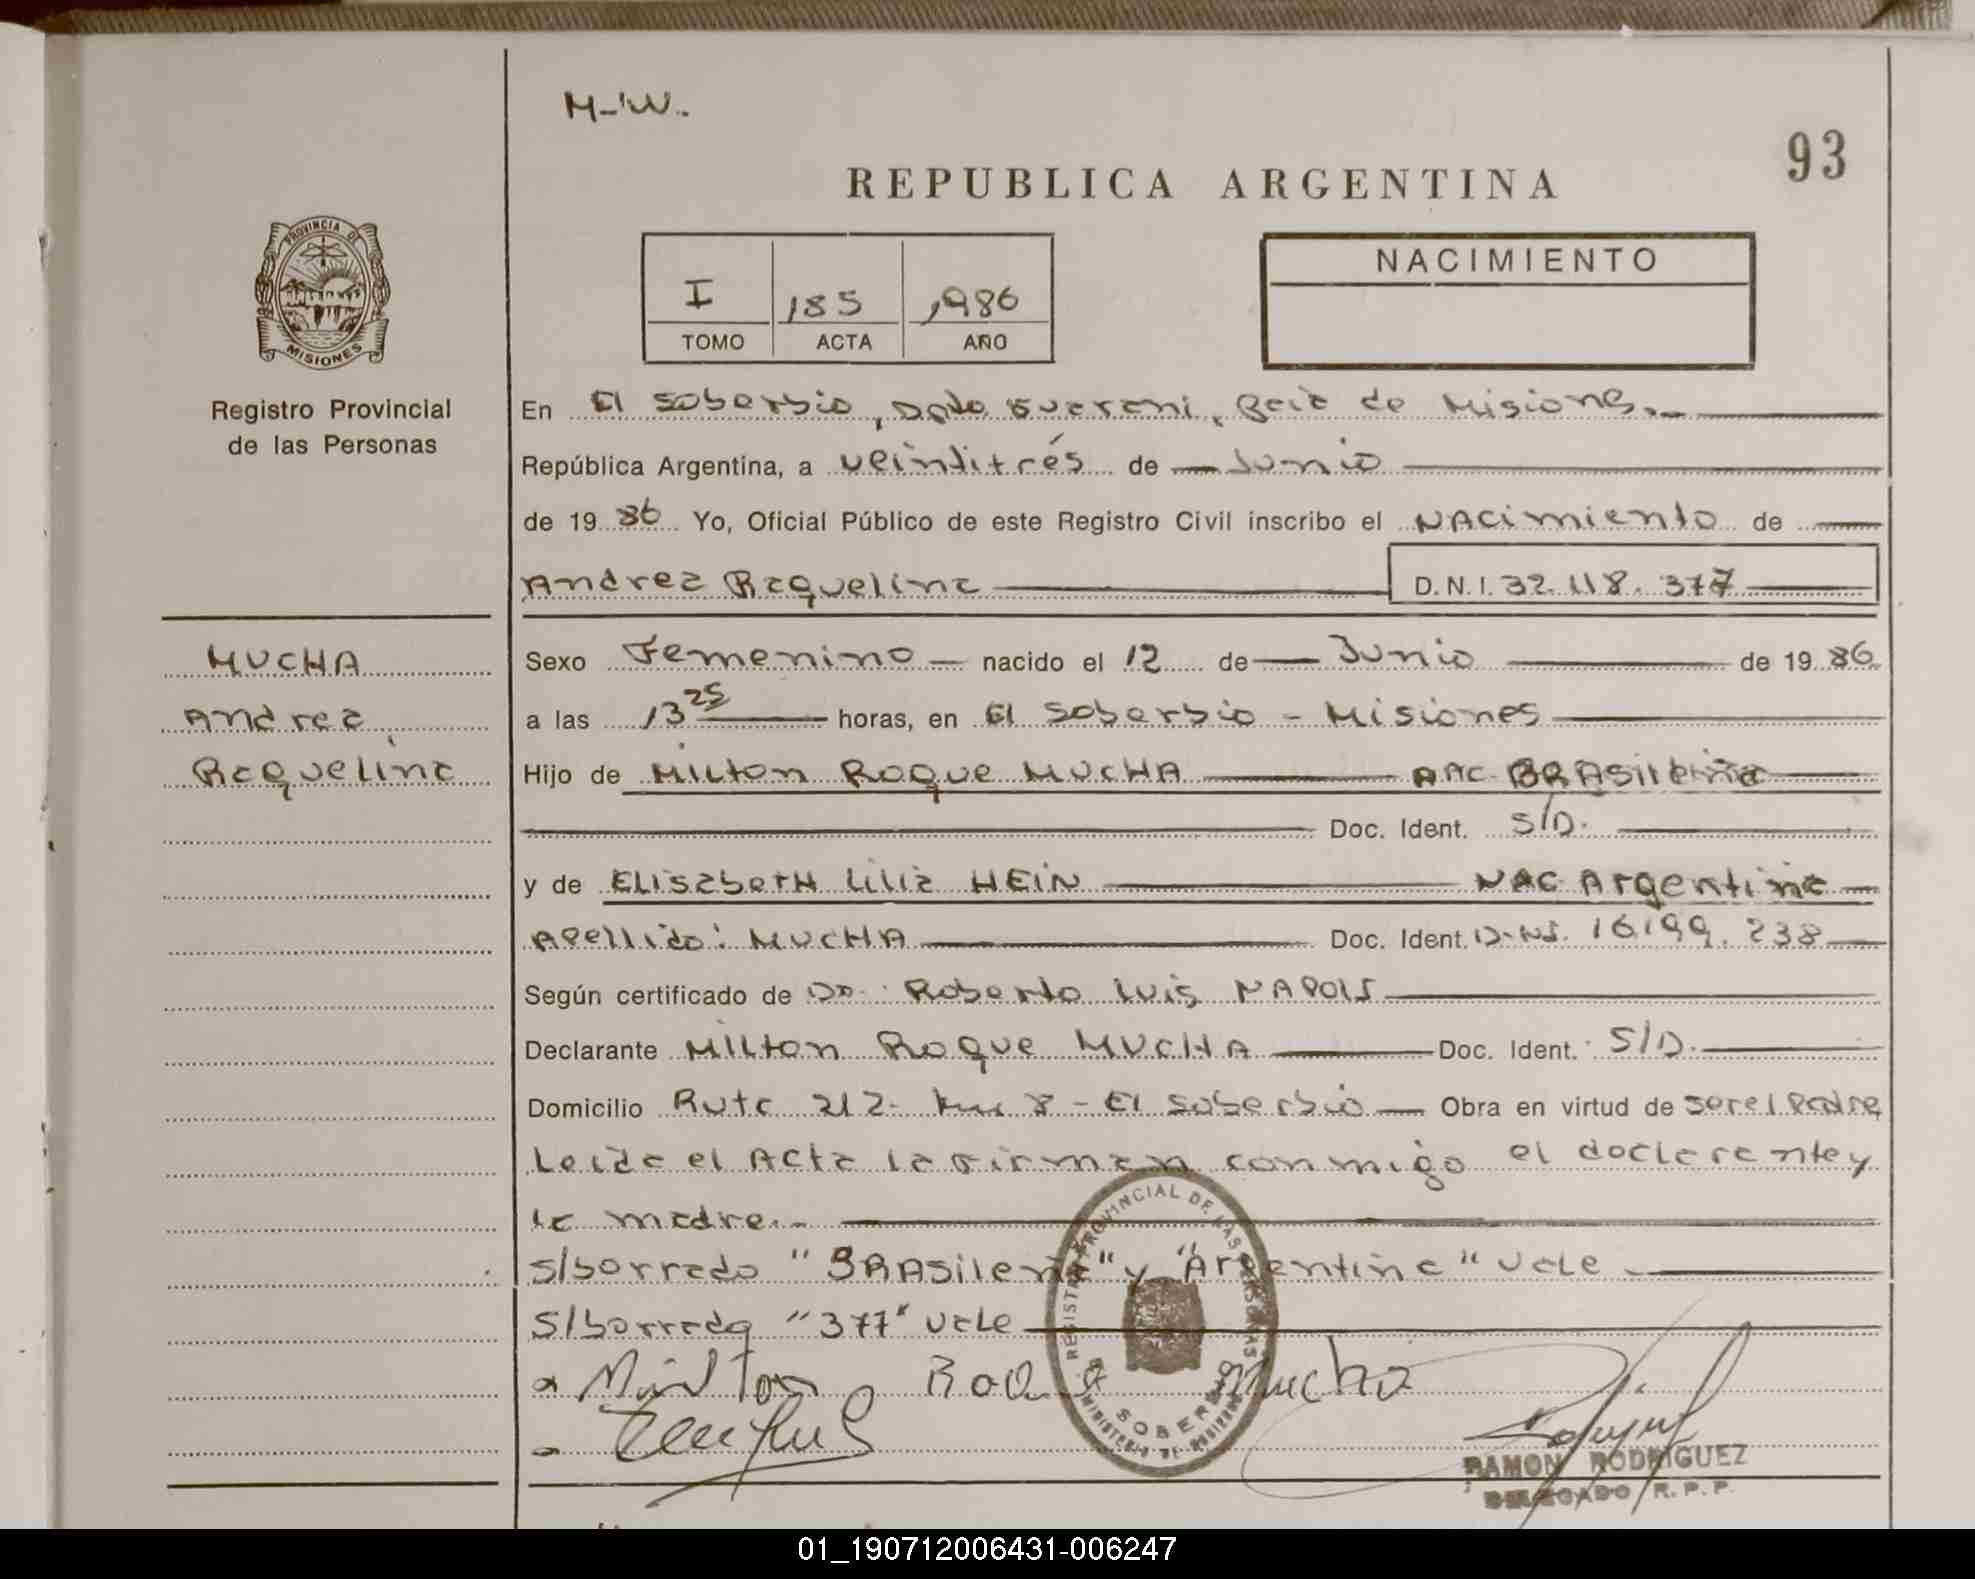 M-W.
93
REPUBLICA ARGENTINA
PROVINCIA DE
MISIONES
Registro Provincial
de las Personas
I 185 1986
TOMO ACTA AÑO
NACIMIENTO
En El Soberbio, Dpto Guarani, Pcia de Misiones.-
República Argentina, a veintitrés de Junio
de 19 86 Yo, Oficial Público de este Registro Civil inscribo el NACimiento de
Andrea Raquelina D.N.I. 32.118.377
MUCHA
Andrea
Raquelina
Sexo Femenino nacido el 12 de Junio de 19 86
a las 13 25 horas, en El Soberbio - Misiones
Hijo de Milton Roque MUCHA NAC- BRASileña
Doc. Ident. S/D.
y de ELisabetH Lilia HEIN NAC Argentina
Apellido: MUCHA Doc. Ident. D.NI. 16.199.238
Según certificado de Dr. Roberto Luis NAPOLS
Declarante Milton Roque MUCHA Doc. Ident. S/D.
Domicilio Ruta 212- km 8 - El Soberbio Obra en virtud de ser el Padre
Leida el Acta la firman conmigo el declarante y
la madre.-
S/borrado "BRAsileña" y "Argentina" vale
S/borrado "377" vale
Milton Roq Mucha
REGISTRO PROVINCIAL DE LAS PERSONAS
SOBERBIO
MINISTERIO DE GOBIERNO
RAMON RODRIGUEZ
DELEGADO R.P.P.
01_190712006431-006247